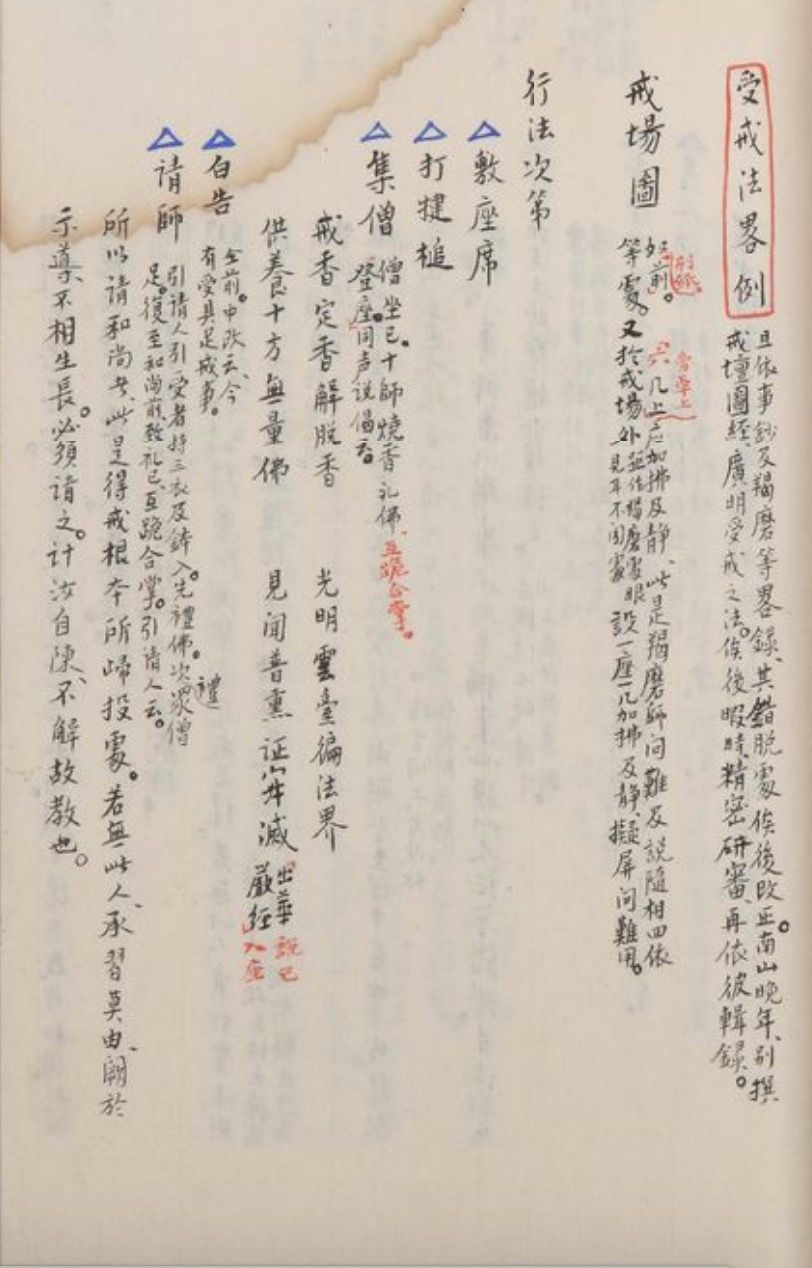 受戒法畧例
且依事鈔及羯磨等畧録、其錯脱處俟後改正。南山晚年、别撰
戒壇圖經、廣明受戒之法。俟後暇時、精密研審、再依彼輯録。
戒場圖
如前。
等處。又於戒場外
几上应加拂及靜、此是羯磨師问難及説隨相四依
設一座一几加拂及靜、擬屏问難用。
眼見耳不闻處
行法次第
敷座席
打揵槌
集僧
僧坐已。十師燒香礼佛、互跪合掌。
登座同声说偈云
戒香定香解脱香 光明雲臺徧法界
供養十方無量佛 見闻普熏证寂滅
出華
嚴經
説已
入座
白告
仝前。中改云、今
有受具足戒事。
请師
引请人引受者持三衣及鉢入。先禮佛。次禮衆僧
足。復至和尚前致礼已、互跪合掌。引请人云。
所以请和尚者、此是得戒根本所歸投處。若無此人、承習莫由、闕於
示導、不相生長。必須请之。计汝自陳、不解故教也。